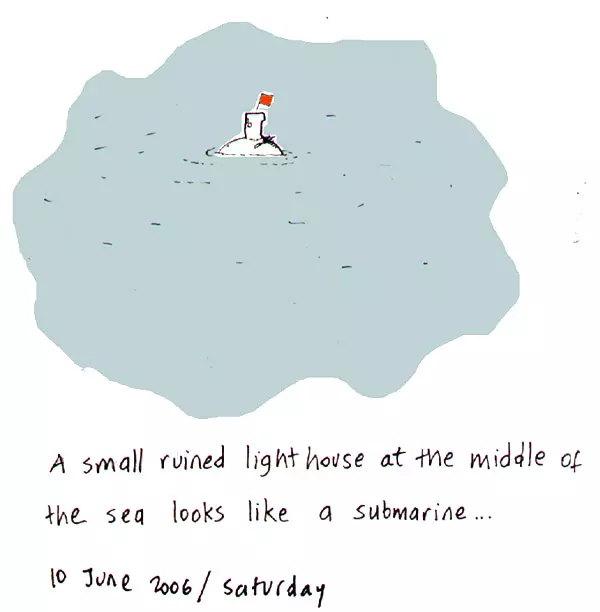 A small ruined light house at the middle of
the sea looks like a submarine...
10 June 2006 / Saturday